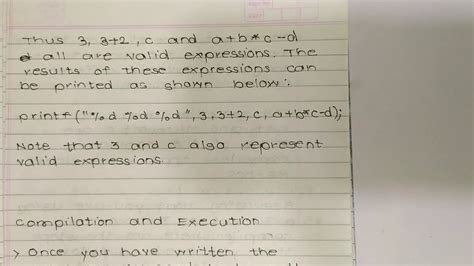 Thus 3, 3+2, c and a+b*c-d
all are valid expressions. The
results of these expressions can
be printed as shown below:.
printf("%d %d %d", 3, 3+2, c, a+b*c-d);
Note that 3 and c also represent
valid expressions
compilation and Execution
> Once you have written the